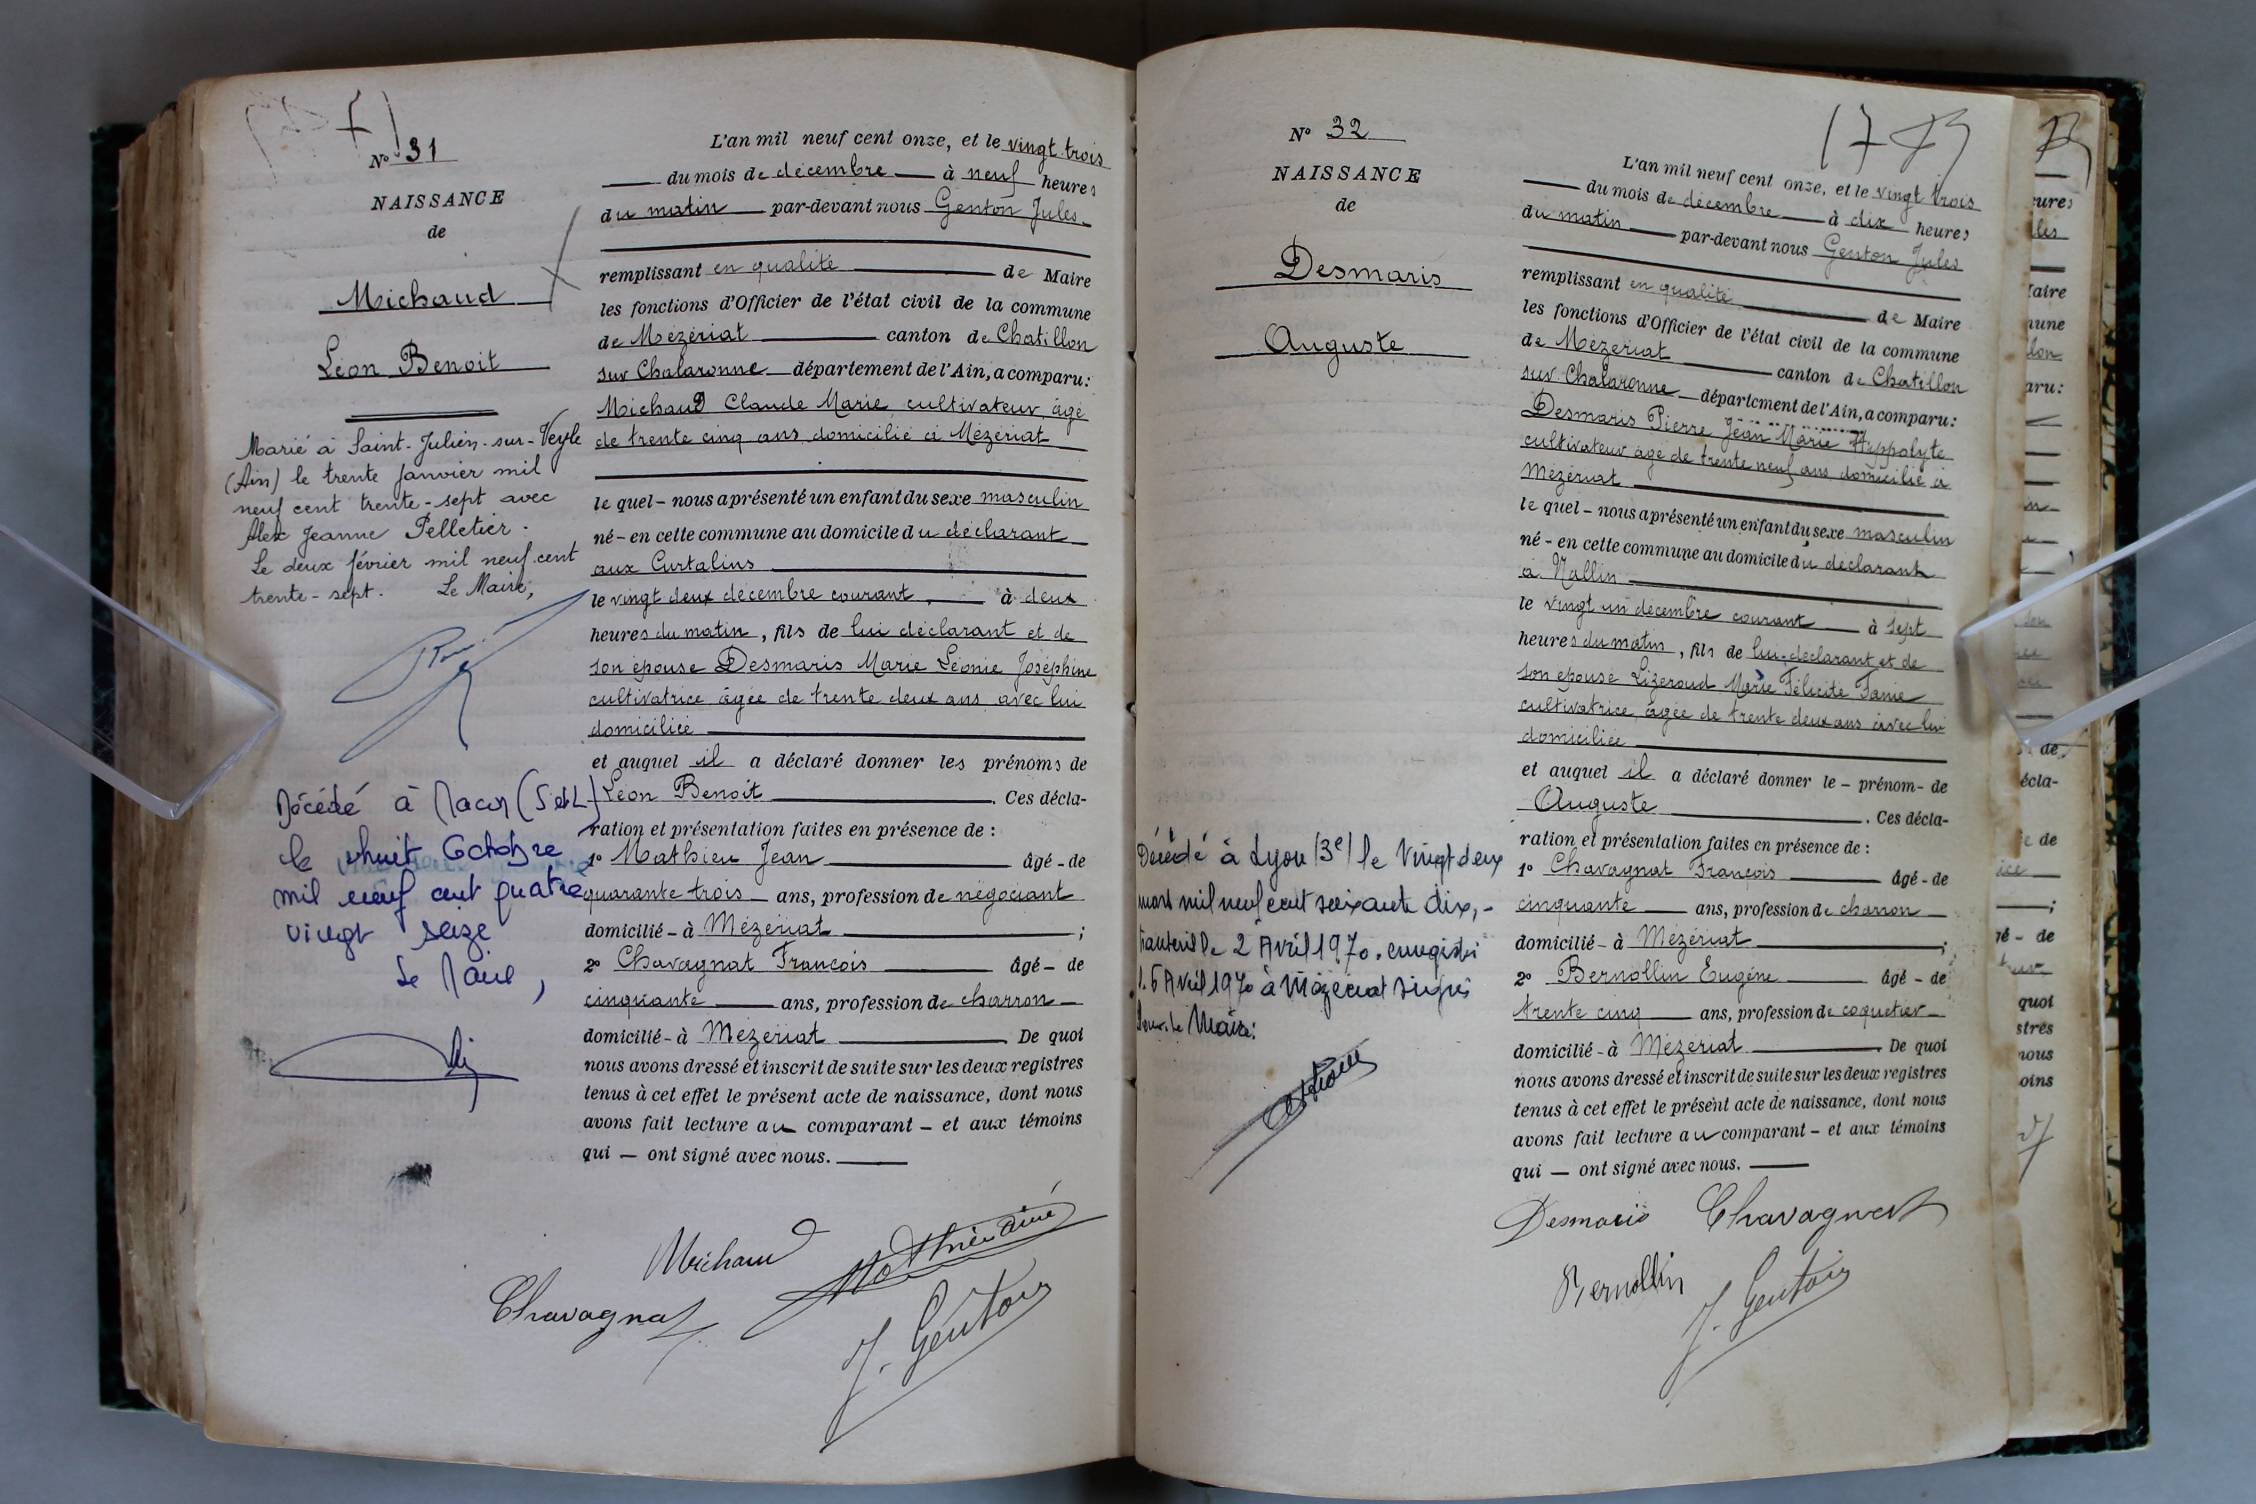 N° 31
NAISSANCE
de
Michaud
Léon Benoit
Marié à Saint-Julien-sur-Veyle
(Ain) le trente Janvier mil
neuf cent trente-sept avec
Jeanne Pelletier.
Le deux février mil neuf cent
trente-sept. Le Maire,
Décédé à Macon (S et L)
le huit Octobre
mil neuf cent quatre
vingt seize
Le Maire,
L'an mil neuf cent onze, et le vingt trois
du mois de décembre à neuf heures
du matin par-devant nous Genton Jules
remplissant en qualité de Maire
les fonctions d'Officier de l'état civil de la commune
de Mézériat canton de Chatillon
sur Chalaronne département de l'Ain, a comparu:
Michaud Claude Marie cultivateur âgé
de trente cinq ans domicilié à Mézériat
le quel - nous a présenté un enfant du sexe masculin
né - en cette commune au domicile du déclarant
aux Curtalins
le vingt deux décembre courant, à deux
heures du matin, fils de lui déclarant et de
son épouse Desmaris Marie Léonie Joséphine
cultivatrice âgée de trente deux ans avec lui
domiciliée
et auquel il a déclaré donner les prénoms de
Léon Benoit. Ces décla-
ration et présentation faites en présence de :
1° Mathieu Jean âgé - de
quarante trois ans, profession de négociant
domicilié - à Mézériat ;
2° Chavagnat François âgé - de
cinquante ans, profession de charron
domicilié - à Mézériat. De quoi
nous avons dressé et inscrit de suite sur les deux registres
tenus à cet effet le présent acte de naissance, dont nous
avons fait lecture au comparant - et aux témoins
qui — ont signé avec nous.
Michaud Mathieu ainé
Chavagnat
J. Genton
N° 32
NAISSANCE
de
Desmaris
Auguste
Décédé à Lyon (3e) le Vingt deux
mars mil neuf cent soixante dix, -
2 Avril 1970. enregistré
6 Avril 1970 à Mézériat signé
le Maire:
L'an mil neuf cent onze, et le vingt trois
du mois de décembre à dix heures
du matin par-devant nous Genton Jules
remplissant en qualité de Maire
les fonctions d'Officier de l'état civil de la commune
de Mézériat canton de Chatillon
sur Chalaronne département de l'Ain, a comparu:
Desmaris Pierre Jean Marie Hyppolyte
cultivateur âgé de trente neuf ans domicilié à
Mézériat
le quel - nous a présenté un enfant du sexe masculin
né - en cette commune au domicile du déclarant
a
le vingt un décembre courant à sept
heures du matin, fils de lui déclarant et de
son épouse Lizeroud Marie Félicité Fanie
cultivatrice âgée de trente deux ans avec lui
domiciliée
et auquel il a déclaré donner le - prénom - de
Auguste. Ces décla-
ration et présentation faites en présence de :
1° Chavagnat François âgé - de
cinquante ans, profession de charron
domicilié - à Mézériat ;
2° Bernollin Eugène âgé - de
trente cinq ans, profession de coquetier
domicilié - à Mézériat. De quoi
nous avons dressé et inscrit de suite sur les deux registres
tenus à cet effet le présent acte de naissance, dont nous
avons fait lecture au comparant - et aux témoins
qui — ont signé avec nous.
Desmaris Chavagnat
Bernollin J. Genton